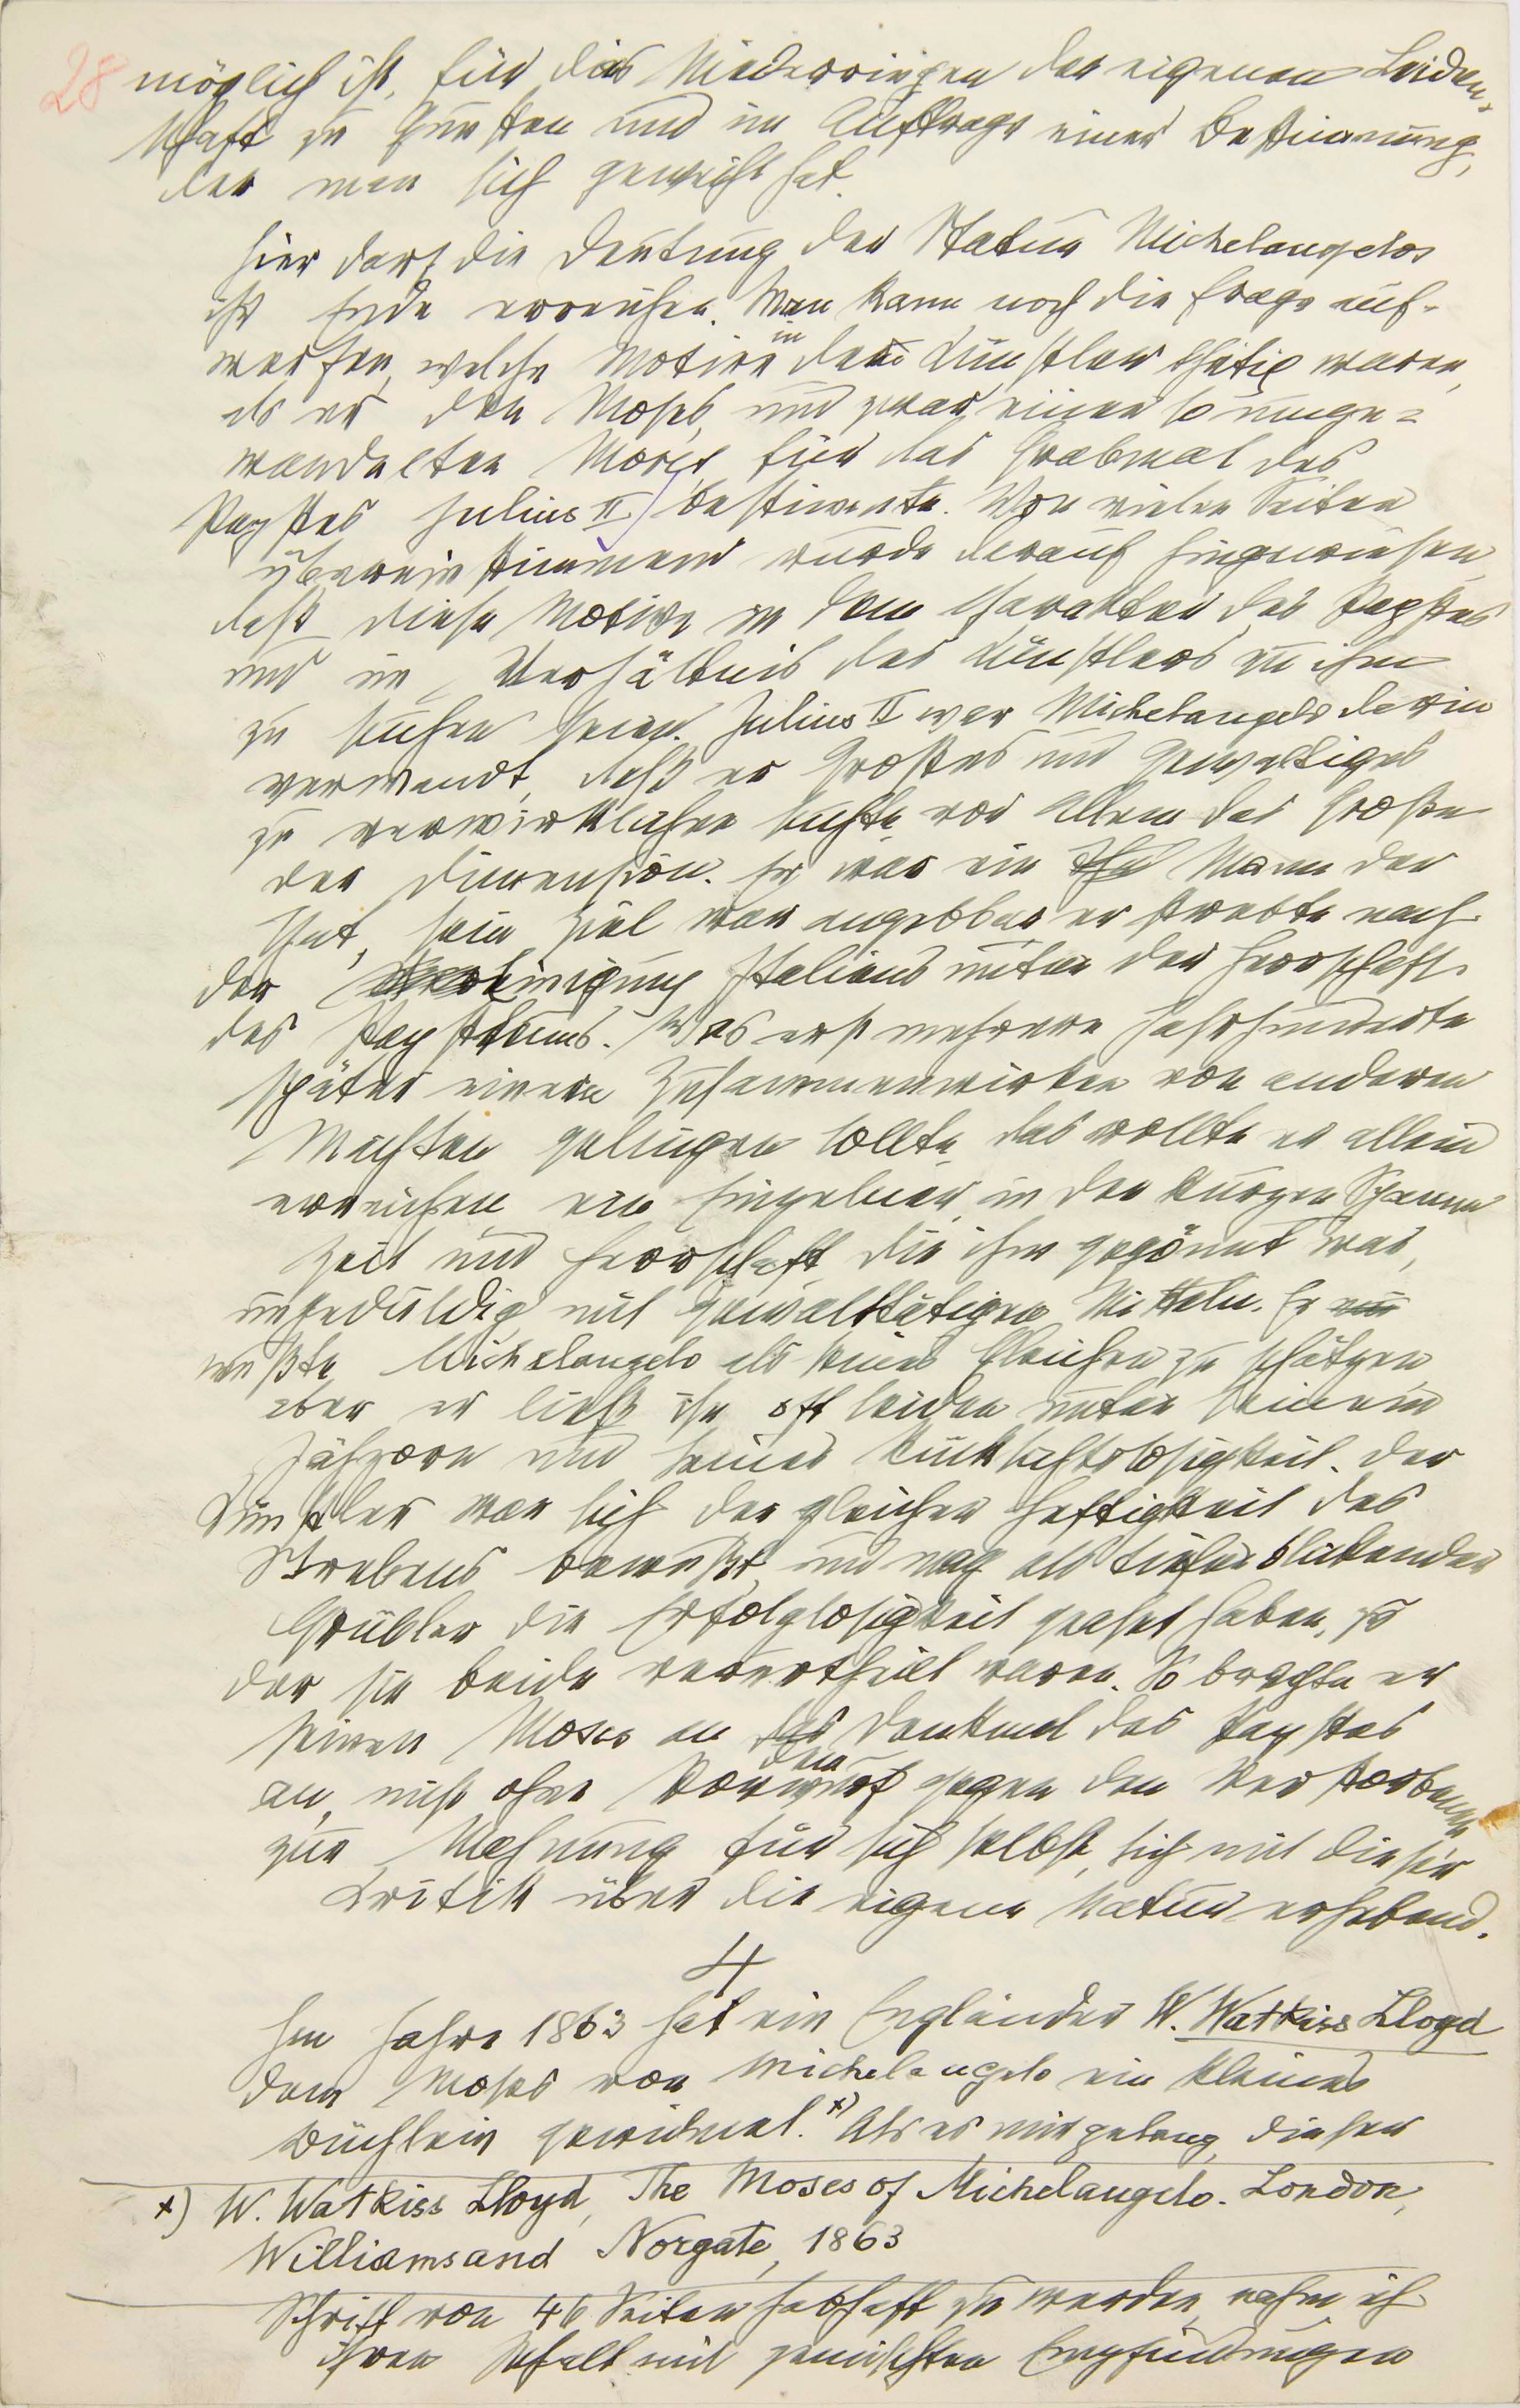 28 möglich ist, für das Niederringen der eigenen Leiden-
schaft zu Gunsten und im Auftrage einer Bestimmung,
der man sich geweiht hat.
Hier darf die Deutung der Statue Michelangelos
ihr Ende erreichen. Man kann noch die Frage auf-
werfen, welche Motive in dem Künstler thätig waren,
als er den Moses, und zwar einen so umge-
wandelten Moses für das Grabmal des
Papstes Julius II bestimmte. Von vielen Seiten
übereinstimmend wurde darauf hingewiesen,
daß diese Motive in dem Charakter des Papstes
und im Verhältnis des Künstlers zu ihm
zu suchen seien. Julius II war Michelangelo darin
verwandt, daß er Großes und Gewaltiges
zu verwirklichen suchte, vor Allem das Große
der Dimension. Er war ein Mann der
That, sein Ziel war angebbar, er strebte nach
der Einigung Italiens unter der Herrschaft
des Papsttums. Was erst mehrere Jahrhunderte
später einem Zusammenwirken von anderen
Mächten gelingen sollte, das wollte er allein
erreichen, ein Einzelner in der kurzen Spanne
Zeit und Herrschaft, die ihm gegönnt war,
ungeduldig mit gewalttätigen Mitteln. Er
wußte Michelangelo als seines Gleichen zu schätzen,
aber er ließ ihn oft leiden unter seinem
Jähzorn und seiner Rücksichtslosigkeit. Der
Künstler war sich der gleichen Heftigkeit des
Strebens bewußt und mag als tiefer blickender
Grübler die Erfolglosigkeit geahnt haben, zu
der sie beide verurtheilt waren. So brachte er
seinen Moses an dem Denkmal des Papstes
an, nicht ohne Vorwurf gegen den Verstorbenen,
zur Mahnung für sich selbst, sich mit dieser
Kritik über die eigene Natur erhebend.
4
Im Jahre 1863 hat ein Engländer W. Watkiss Lloyd
dem Moses von Michelangelo ein kleines
Büchlein gewidmet. x) Als es mir gelang, dieser
x) W. Watkiss Lloyd, The Moses of Michelangelo. London,
Williams and Norgate, 1863
Schrift von 46 Seiten habhaft zu werden, nahm ich
ihren Inhalt mit gemischten Empfindungen